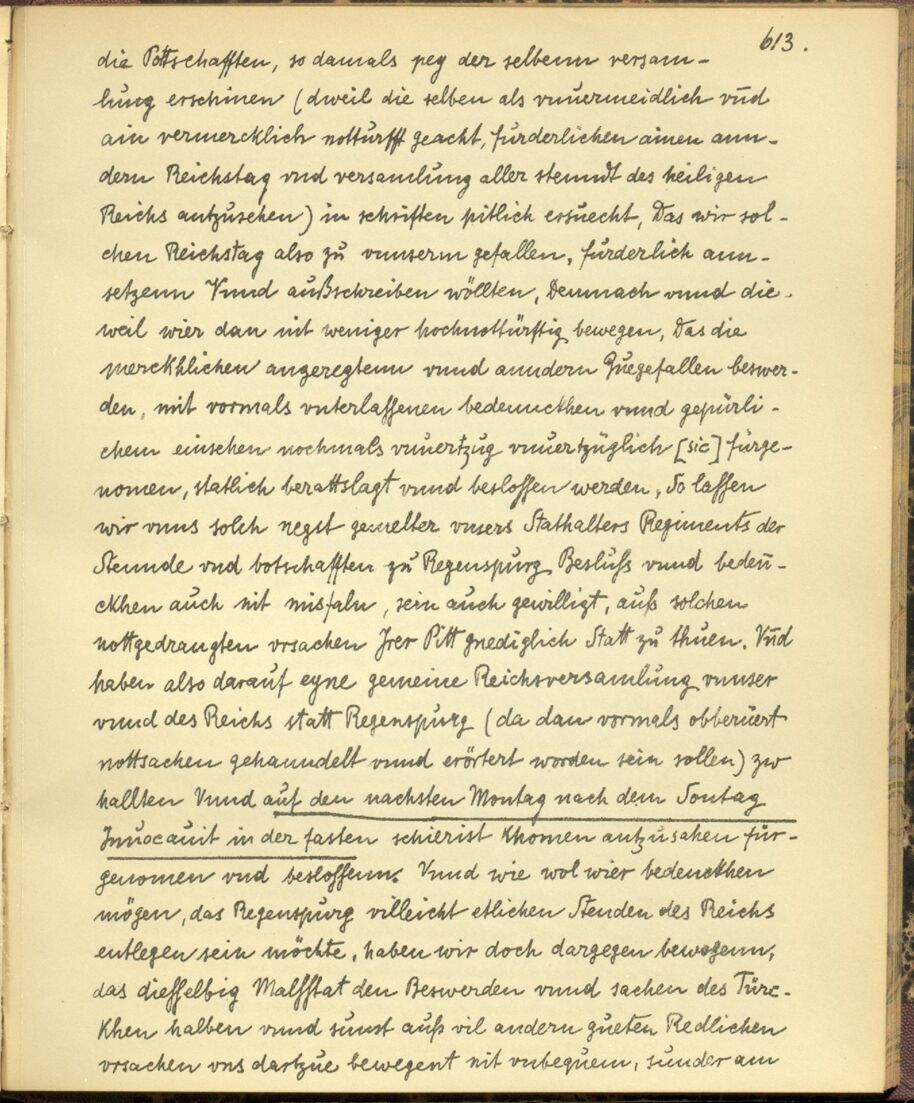 613.
die Pottschafften, so damals pey der selbenn versam-
lung erschinen (dweil die selben als vnuermeidlich vnd
ain vermercklich notturfft geacht, furderlichen ainen ann-
dern Reichstag vnd versamlung aller stenndt des heiligen
Reichs antzusehen) in schriften pitlich ersuecht, Das wir sol-
chen Reichstag also zů vnnserm gefallen, fürderlich ann-
setzenn Vnnd außschreiben wöllten, Demnach vnnd die-
weil wier dan nit weniger hochnottürftig bewegen, Das die
merckhlichen angeregtenn vnnd anndern Zuegefallen beswer-
den, mit vormals vnterlassenen bedennckhen vnnd gepürli-
chem einsehen nochmals vnuertzug vnuertzüglich [sic] fürge-
nomen, statlich berattslagt vnnd beslossen werden, So lassen
wir vnns solch negst gemelter vnsers Stathalters Regiments der
Stennde vnd botschafften zů Regenspurg Besluß vnnd bedeň-
ckhen auch nit misfaln, sein auch gewilligt, auß solchen
nottgedrangten vrsachen Jrer Pitt gnediglich Statt zů thuen. Vnd
haben also darauf eyne gemeine Reichsversamlung vnnser
vnnd des Reichs statt Regenspurg (da dan vormals obberüert
nottsachen gehanndelt vnnd erörtert worden sein sollen) zw
hallten Vnnd auf den nachsten Montag nach dem Sontag
Jnuocauit in der fasten schierist khomen antzusahen für-
genomen vnd beslossenn. Vnnd wie wol wier bedenckhen
mögen, das Regenspurg villeicht etlichen Stenden des Reichs
entlegen sein möchte, haben wir doch dargegen bewogenn,
das dieselbig Malsstat den Beswerden vnnd sachen des Türc-
khen halben vnnd sunst auß vil andern gueten Redlichen
vrsachen vns dartzue bewegent nit vnbequem, sunder am